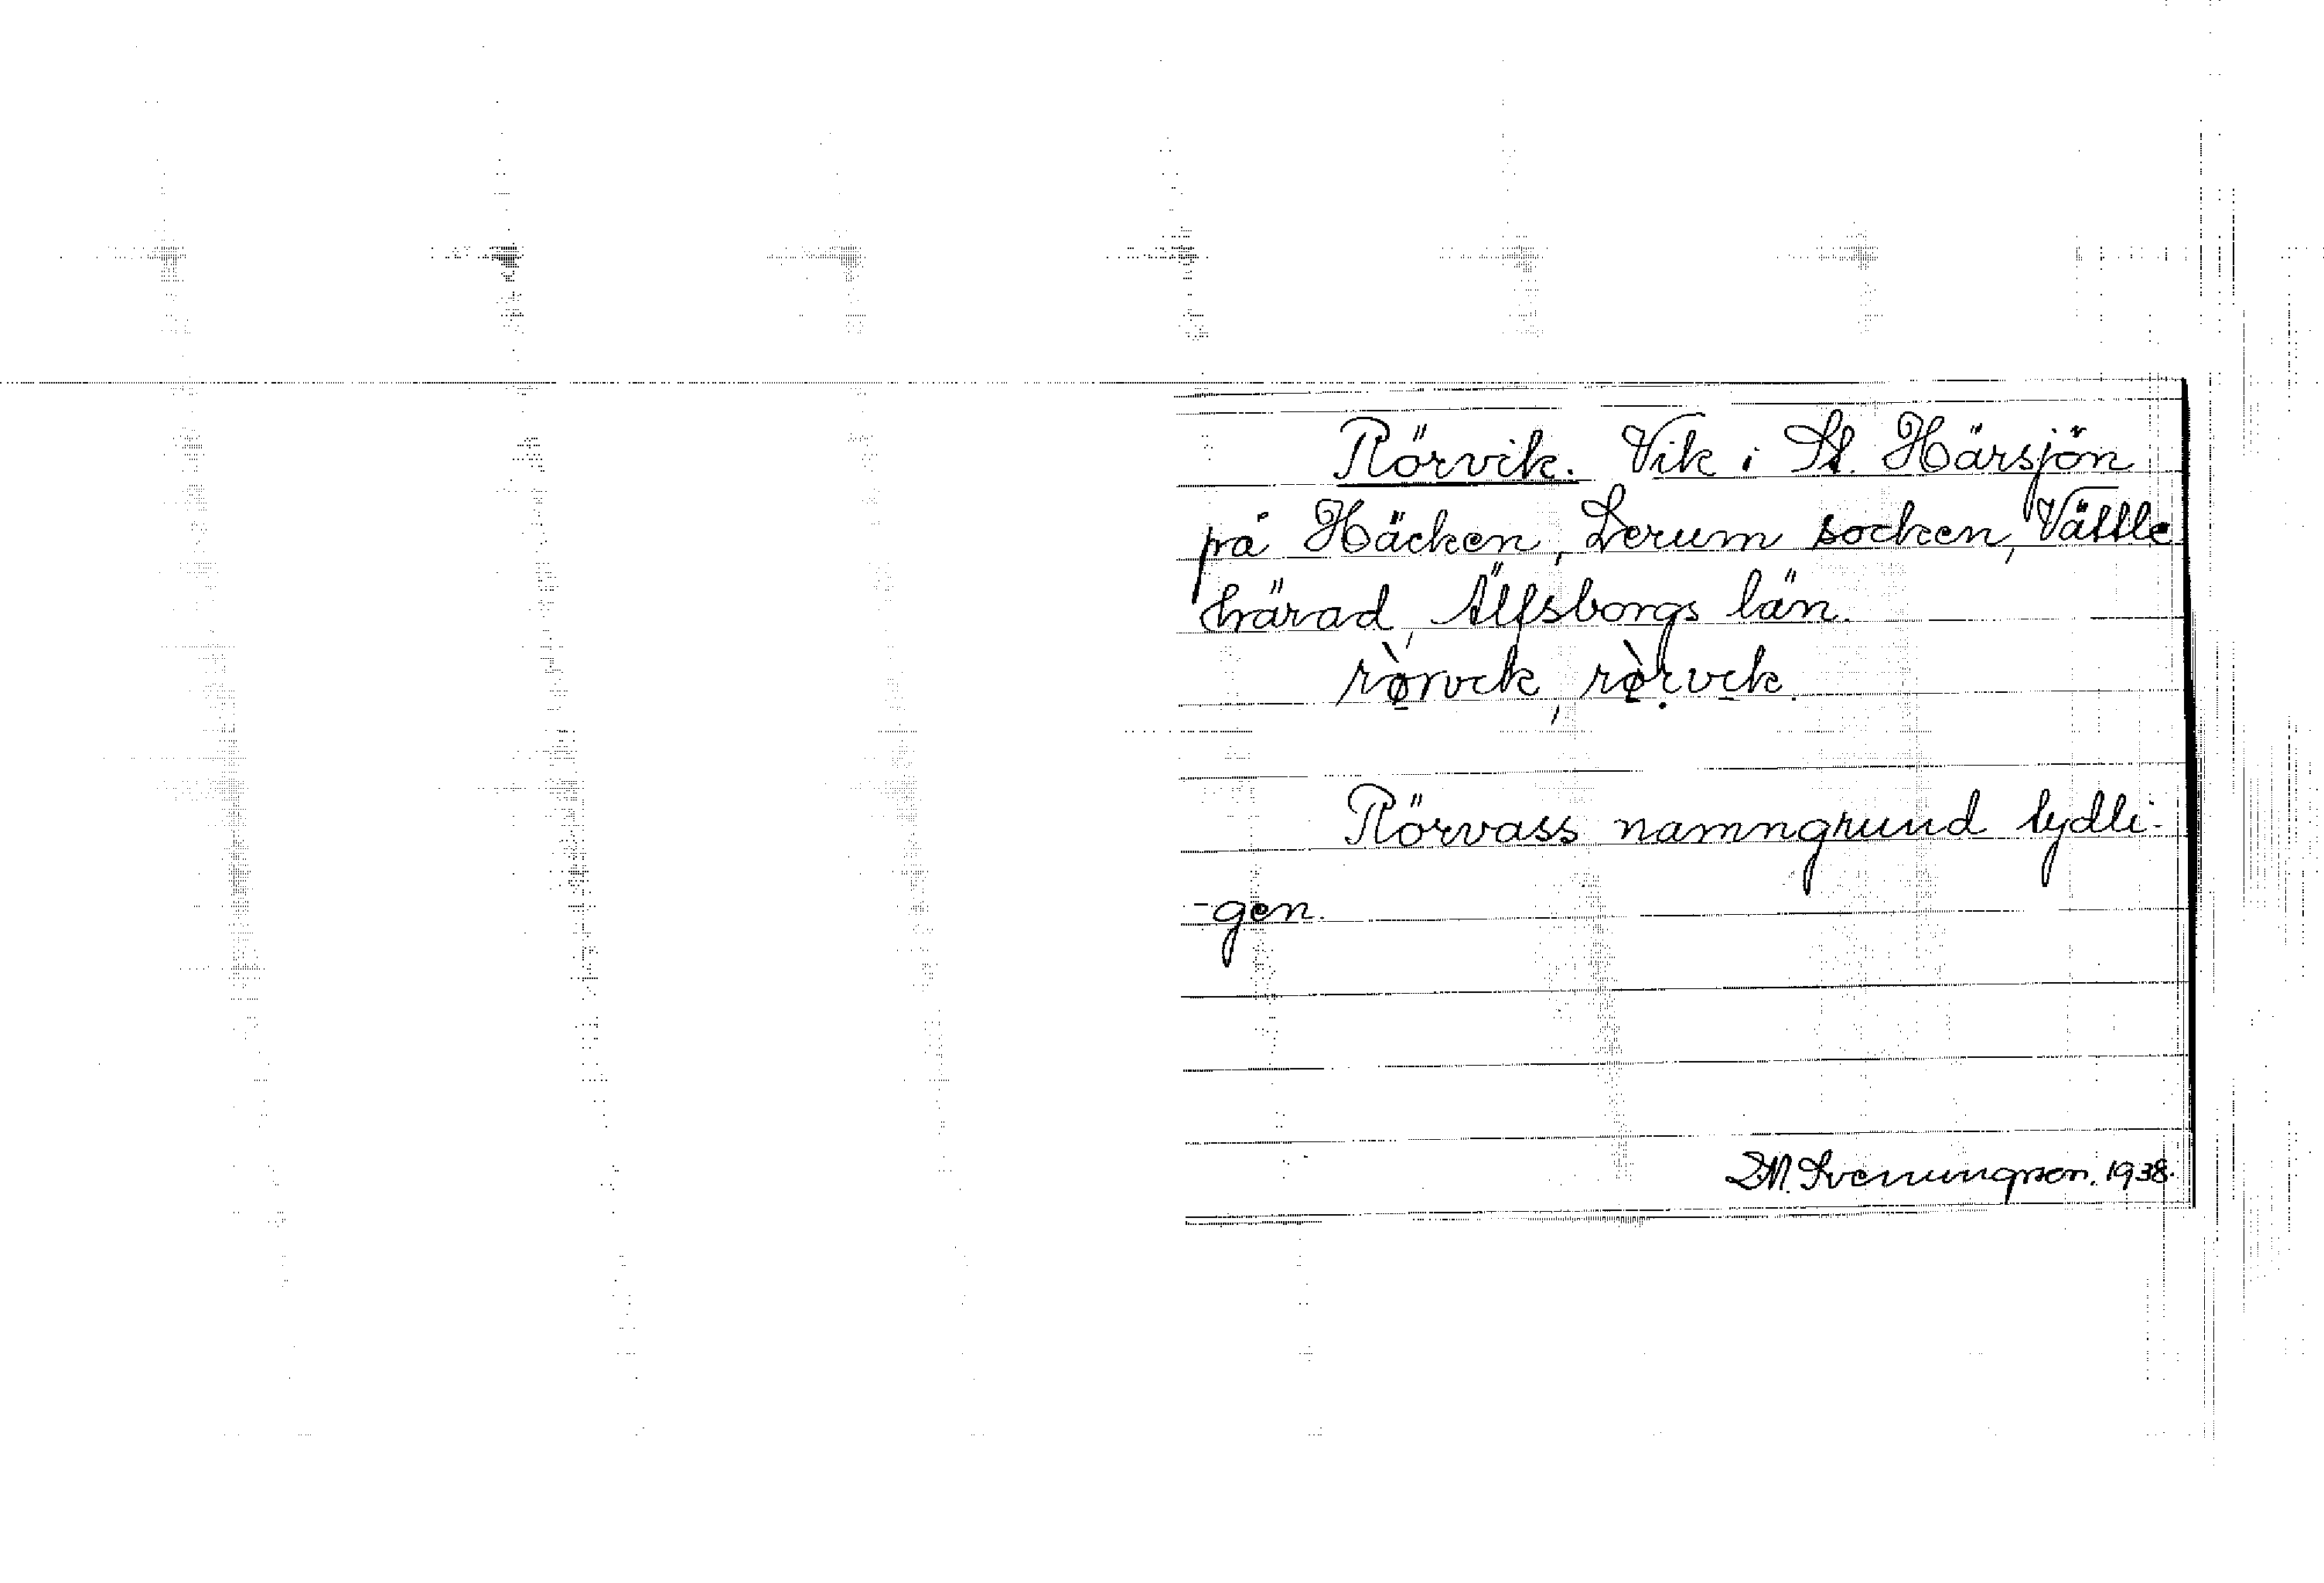 Rörvik. Vik i St. Härsjön
på Häcken, Lerum socken, Vättle
härad, Älfsborgs län.
rø̀rvɩk, rø̀ṛvɩk.
Rörvass namngrund tydli-
-gen.
D.M. Svenungson. 1938.